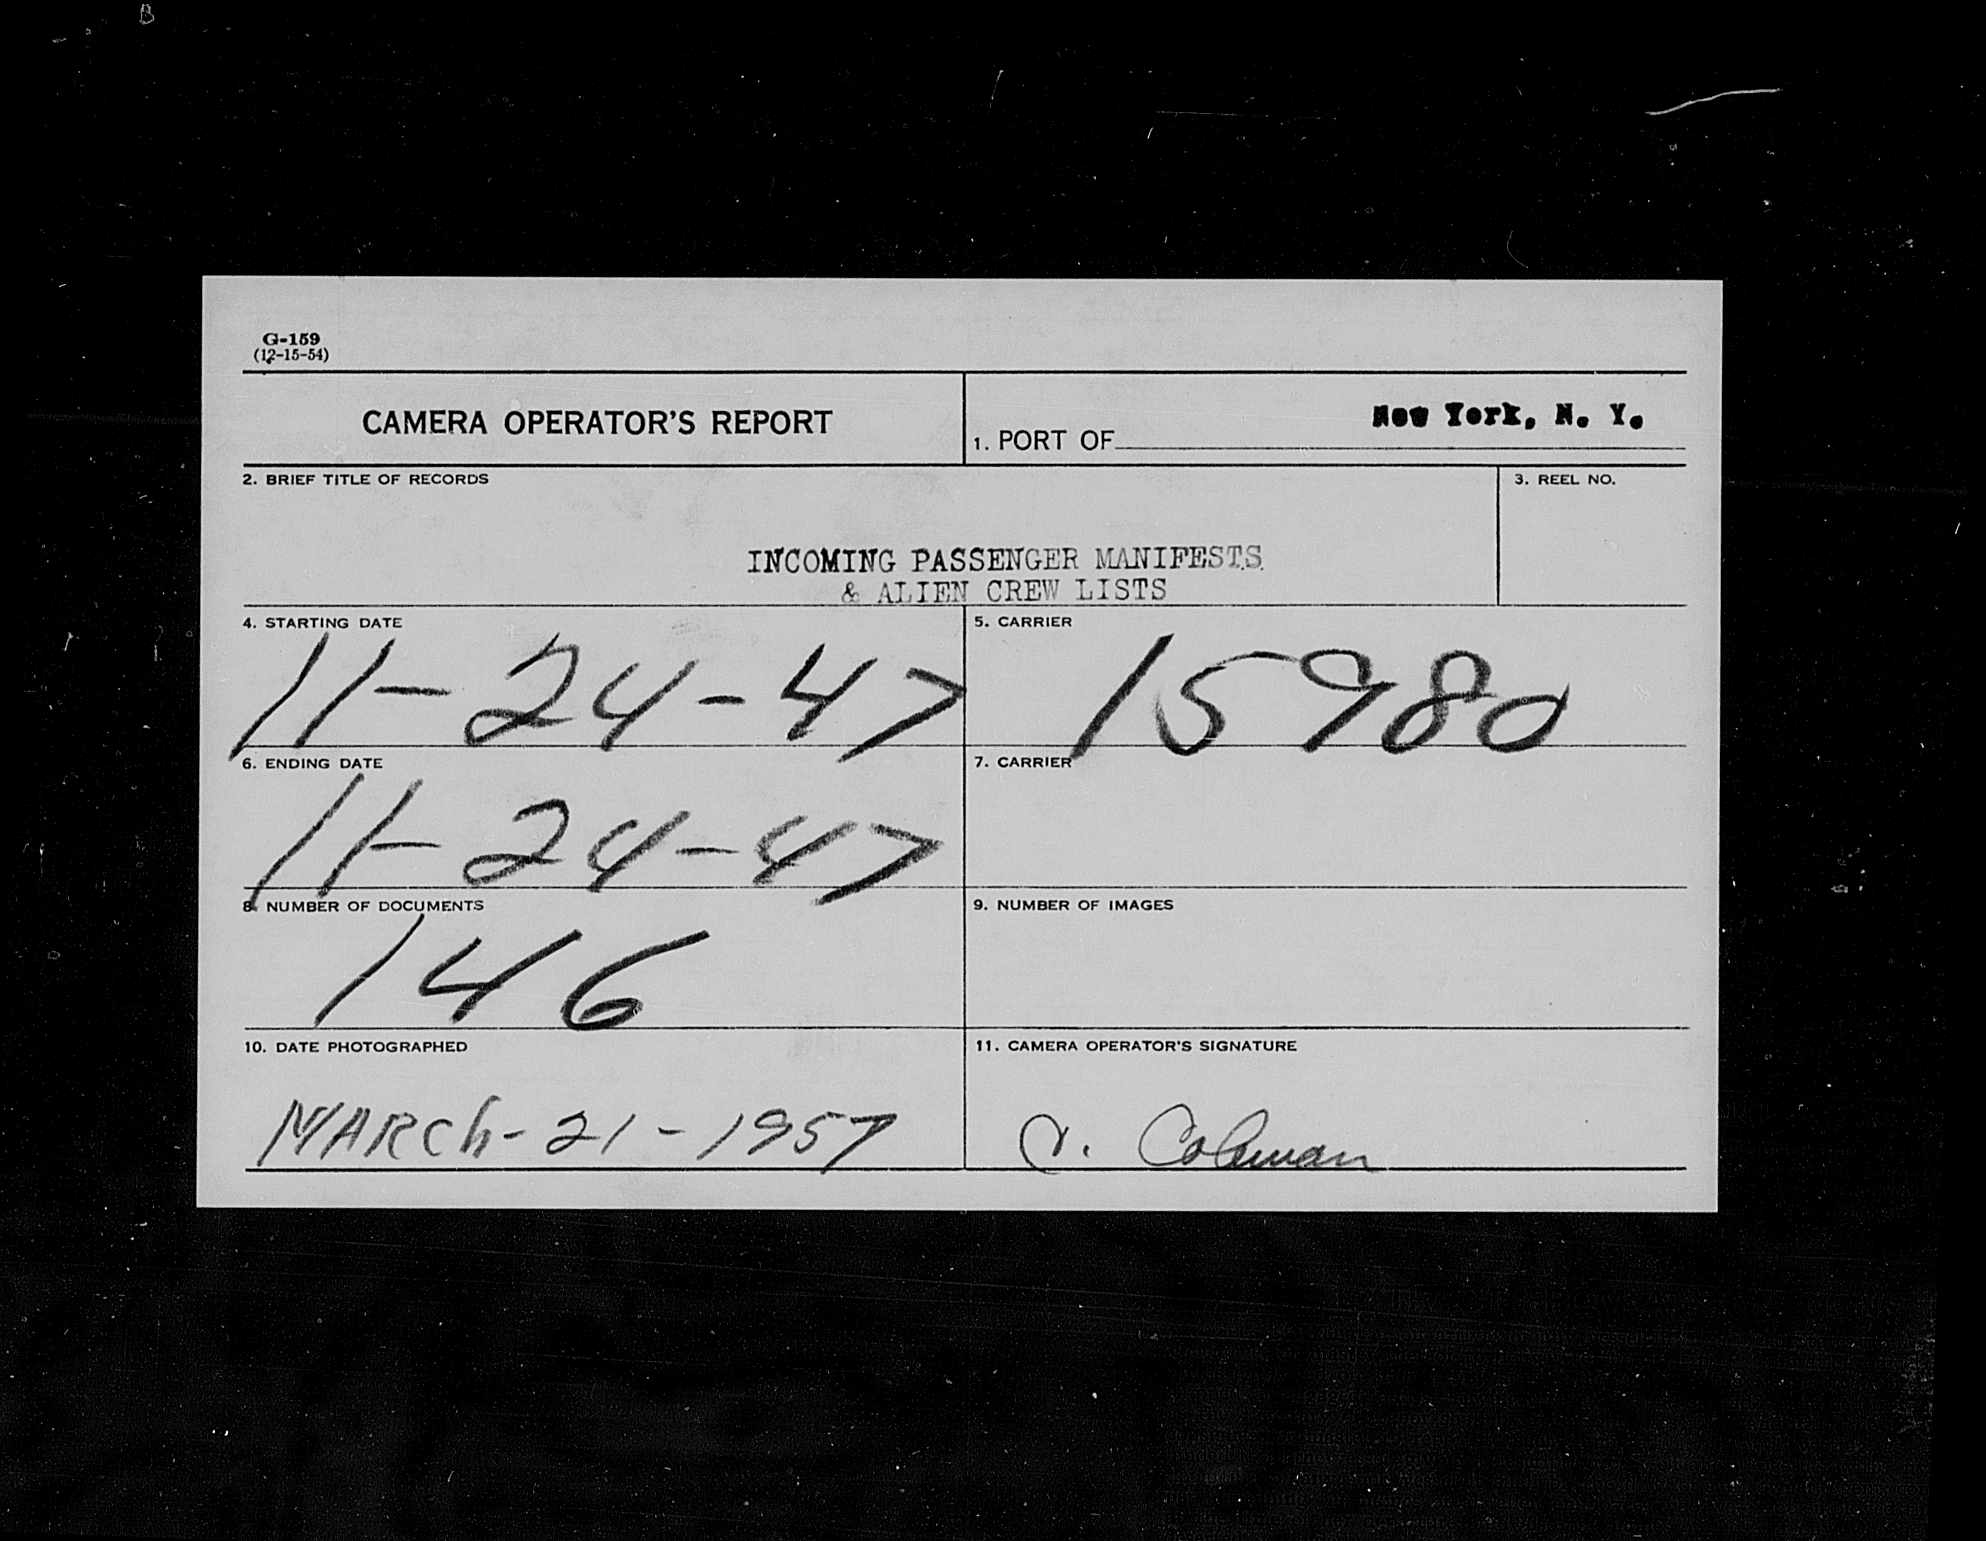 B
G-159
(12-15-54)
CAMERA OPERATOR'S REPORT
1. PORT OF New York, N. Y.
2. BRIEF TITLE OF RECORDS
3. REEL NO.
INCOMING PASSENGER MANIFESTS
& ALIEN CREW LISTS
4. STARTING DATE
11-24-47
5. CARRIER
15980
6. ENDING DATE
11-24-47
7. CARRIER
8. NUMBER OF DOCUMENTS
146
9. NUMBER OF IMAGES
10. DATE PHOTOGRAPHED
MARCh-21-1957
11. CAMERA OPERATOR'S SIGNATURE
Coleman